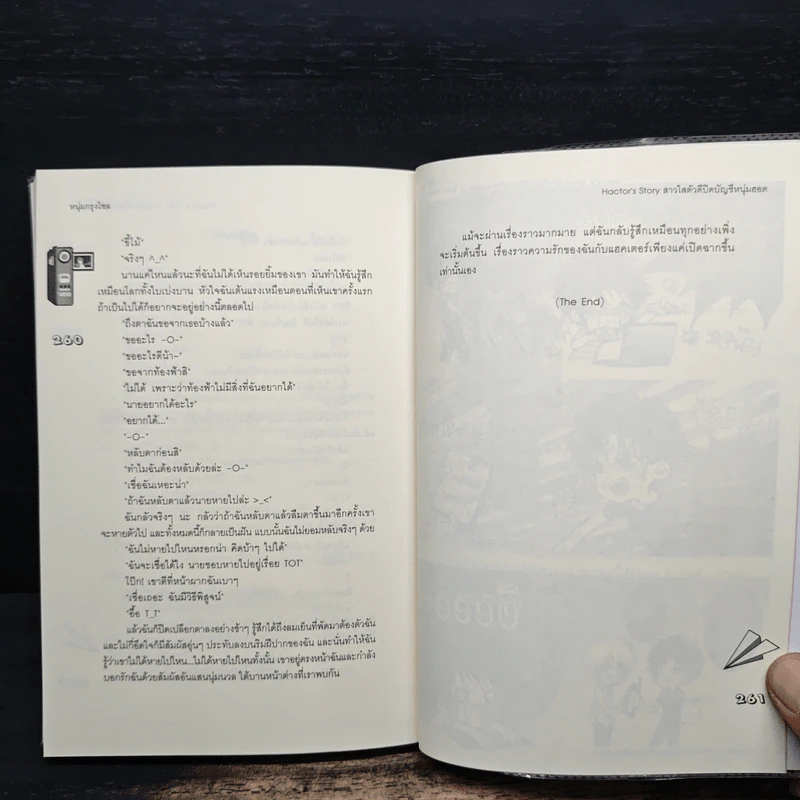 หนุ่มกรุงโซล
"ขี้ไม้"
"จริงๆ ^_^"
นานแค่ไหนแล้วนะที่ฉันไม่ได้เห็นรอยยิ้มของเขา มันทำให้ฉันรู้สึก
เหมือนโลกทั้งใบเบ่งบาน หัวใจฉันเต้นแรงเหมือนตอนที่เห็นเขาครั้งแรก
ถ้าเป็นไปได้ก็อยากจะอยู่อย่างนี้ตลอดไป
"ถึงตาฉันขอจากเธอบ้างแล้ว"
"ขออะไร -O-"
"ขออะไรดีน้า~"
"ขอจากท้องฟ้าสิ"
"ไม่ได้ เพราะว่าท้องฟ้าไม่มีสิ่งที่ฉันอยากได้"
"นายอยากได้อะไร"
"อยากได้..."
"-O-"
"หลับตาก่อนสิ"
"ทำไมฉันต้องหลับด้วยล่ะ -O-"
"เชื่อฉันเหอะน่า"
"ถ้าฉันหลับตาแล้วนายหายไปล่ะ >_<"
ฉันกลัวจริงๆ นะ กลัวว่าถ้าฉันหลับตาแล้วลืมตาขึ้นมาอีกครั้งเขา
จะหายตัวไป และทั้งหมดนี้ก็กลายเป็นฝัน แบบนั้นฉันไม่ยอมหลับจริงๆ ด้วย
"ฉันไม่หายไปไหนหรอกน่า คิดบ้าๆ ไปได้"
"ฉันจะเชื่อได้ไง นายชอบหายไปอยู่เรื่อย TOT"
โป๊ก! เขาตีที่หน้าผากฉันเบาๆ
"เชื่อเถอะ ฉันมีวิธีพิสูจน์"
"อื้อ T_T"
แล้วฉันก็ปิดเปลือกตาลงอย่างช้าๆ รู้สึกได้ถึงลมเย็นที่พัดมาต้องตัวฉัน
และไม่กี่อึดใจก็มีสัมผัสอุ่นๆ ประทับลงบนริมฝีปากของฉัน และนั่นทำให้ฉัน
รู้ว่าเขาไม่ได้หายไปไหน...ไม่ได้หายไปไหนทั้งนั้น เขาอยู่ตรงหน้าฉันและกำลัง
บอกรักฉันด้วยสัมผัสอันแสนนุ่มนวล ใต้บานหน้าต่างที่เราพบกัน
260
Hactor's Story สาวใสตัวดีปิดบัญชีหนุ่มฮอต
แม้จะผ่านเรื่องราวมากมาย แต่ฉันกลับรู้สึกเหมือนทุกอย่างเพิ่ง
จะเริ่มต้นขึ้น เรื่องราวความรักของฉันกับแฮคเตอร์เพียงแค่เปิดฉากขึ้น
เท่านั้นเอง
(The End)
261